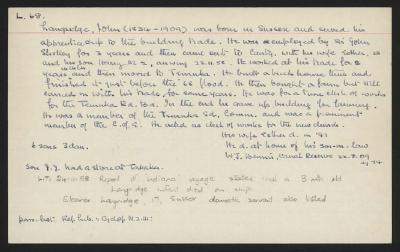 L. 68.
Langridge, John (1834-1909) was born in Sussex and served his
apprenticeship to the building trade. He was employed by Sir John
Shelley for 3 years and then came out to Canty. with his wife Esther
and his son Henry, arriving 22.11.58. He worked at his trade for 2
years, and then moved to Temuka. He built a brick house there and
finished it just before the 68 flood. He then bought a farm but still
carried on with his trade, for some years. He was for a time clerk of works
for the Temuka Ed. Bd. In the end he gave up building for farming.
He was a member of the Temuka Sch. Comm. and was a prominent
member of the C.of.E. He acted as clerk of works for the new church.
His wife Esther d. in '91
6 sons 3 dau.
He d. at home of his son-in-law
W.J. , Canal Reserve 22.8.09
Son J.J. had a store at
L.T. 24-11-58 Report of Indiana voyage states that a 3 mth old
Langridge infant died on ship
Eleanor Langridge, 17, Sussex domestic servant also listed
pass. list: Ref. Pub. : Cyclop N.Z. III: